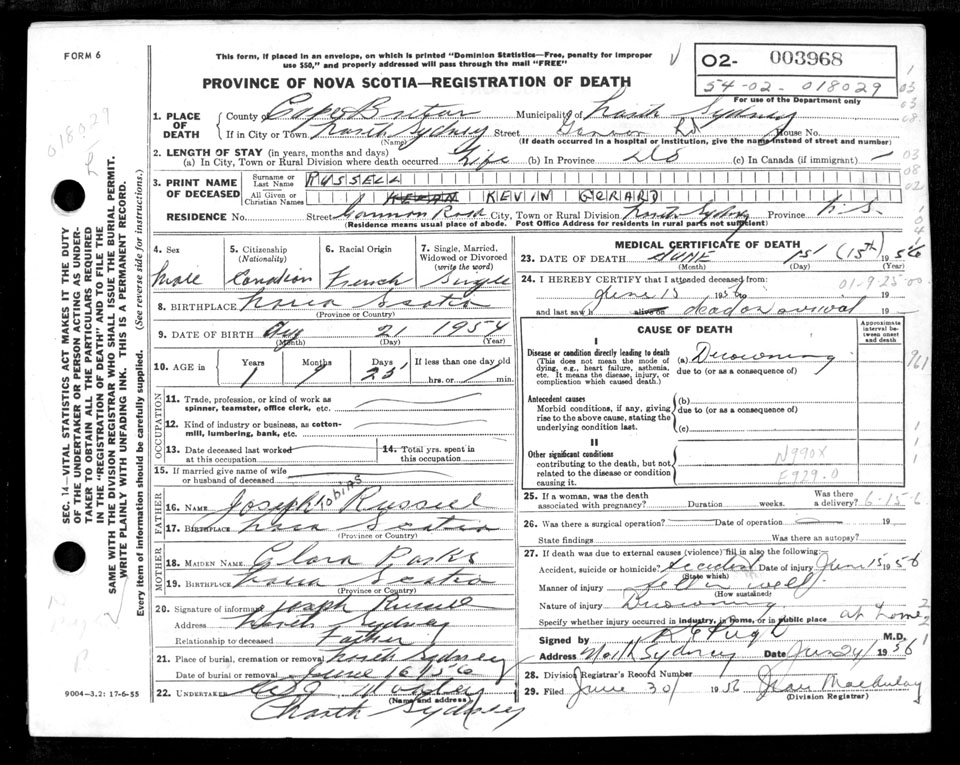 FORM 6
This form, if placed in an envelope, on which is printed "Dominion Statistics—Free, penalty for improper
use $50," and properly addressed will pass through the mail "FREE"
PROVINCE OF NOVA SCOTIA—REGISTRATION OF DEATH
02- 003968
54-02- 018029
For use of the Department only
018029
1. PLACE OF DEATH
County of Cape Breton Municipality of North Sydney
If in City or Town North Sydney Street Rd House No.
(Name) (If death occurred in a hospital or institution, give the name instead of street and number)
2. LENGTH OF STAY (in years, months and days)
(a) In City, Town or Rural Division where death occurred Life (b) In Province (c) In Canada (if immigrant) —
3. PRINT NAME OF DECEASED
Surname or Last Name RUSSELL
All Given or Christian Names KEVIN GERARD
RESIDENCE No. Street Road City, Town or Rural Division North Sydney Province N.S.
(Residence means usual place of abode. Post Office Address for residents in rural parts not sufficient)
4. Sex
Male
5. Citizenship (Nationality)
Canadian
6. Racial Origin
French
7. Single, Married, Widowed or Divorced (write the word)
Single
8. BIRTHPLACE Nova Scotia
(Province or Country)
9. DATE OF BIRTH Aug 21 1954
(Month) (Day) (Year)
10. AGE in
Years Months Days If less than one day old
1 9 25 hrs. or min.
OCCUPATION
11. Trade, profession, or kind of work as
spinner, teamster, office clerk, etc.
12. Kind of industry or business, as cotton-
mill, lumbering, bank, etc.
13. Date deceased last worked
at this occupation
14. Total yrs. spent in
this occupation
15. If married give name of wife
or husband of deceased
FATHER
16. NAME Joseph Tobias Russell
17. BIRTHPLACE Nova Scotia
(Province or Country)
MOTHER
18. MAIDEN NAME Clara Parks
19. BIRTHPLACE Nova Scotia
(Province or Country)
20. Signature of informant Joseph Russell
Address North Sydney
Relationship to deceased Father
21. Place of burial, cremation or removal North Sydney
Date of burial or removal June 16 1956
22. UNDERTAKER
(Name and address)
North Sydney
MEDICAL CERTIFICATE OF DEATH
23. DATE OF DEATH JUNE 15 (15th) 1956
(Month) (Day) (Year)
24. I HEREBY CERTIFY that I attended deceased from:
01-9-25-00
June 15 1956
and last saw h alive on dead on arrival 19
CAUSE OF DEATH
Approximate interval between onset and death
I
Disease or condition directly leading to death
(This does not mean the mode of
dying, e.g., heart failure, asthenia,
etc. It means the disease, injury, or
complication which caused death.)
(a) Drowning
due to (or as a consequence of)
Antecedent causes
Morbid conditions, if any, giving
rise to the above cause, stating the
underlying condition last.
(b)
due to (or as a consequence of)
(c)
II
Other significant conditions
contributing to the death, but not
related to the disease or condition
causing it.
N990X
E929.0
25. If a woman, was the death
associated with pregnancy? Duration weeks. Was there a delivery?
6-15-6
26. Was there a surgical operation? Date of operation 19
State findings Was there an autopsy?
27. If death was due to external causes (violence) fill in also the following:
Accident, suicide or homicide? Accident Date of injury June 15 1956
(State which)
Manner of injury fell in well
(How sustained)
Nature of injury Drowning
Specify whether injury occurred in industry, in home, or in public place at home
Signed by M.D.
Address North Sydney Date June 24 1956
28. Division Registrar's Record Number
29. Filed June 30 1956 Jean MacAulay
(Division Registrar)
SEC. 14—VITAL STATISTICS ACT MAKES IT THE DUTY
OF THE UNDERTAKER OR PERSON ACTING AS UNDER-
TAKER TO OBTAIN ALL THE PARTICULARS REQUIRED
IN THE "REGISTRATION OF DEATH" AND TO FILE THE
SAME WITH THE DIVISION REGISTRAR WHO SHALL ISSUE THE BURIAL PERMIT.
WRITE PLAINLY WITH UNFADING INK. THIS IS A PERMANENT RECORD.
Every item of information should be carefully supplied. (See reverse side for instructions.)
9004—3.2: 17-6-55